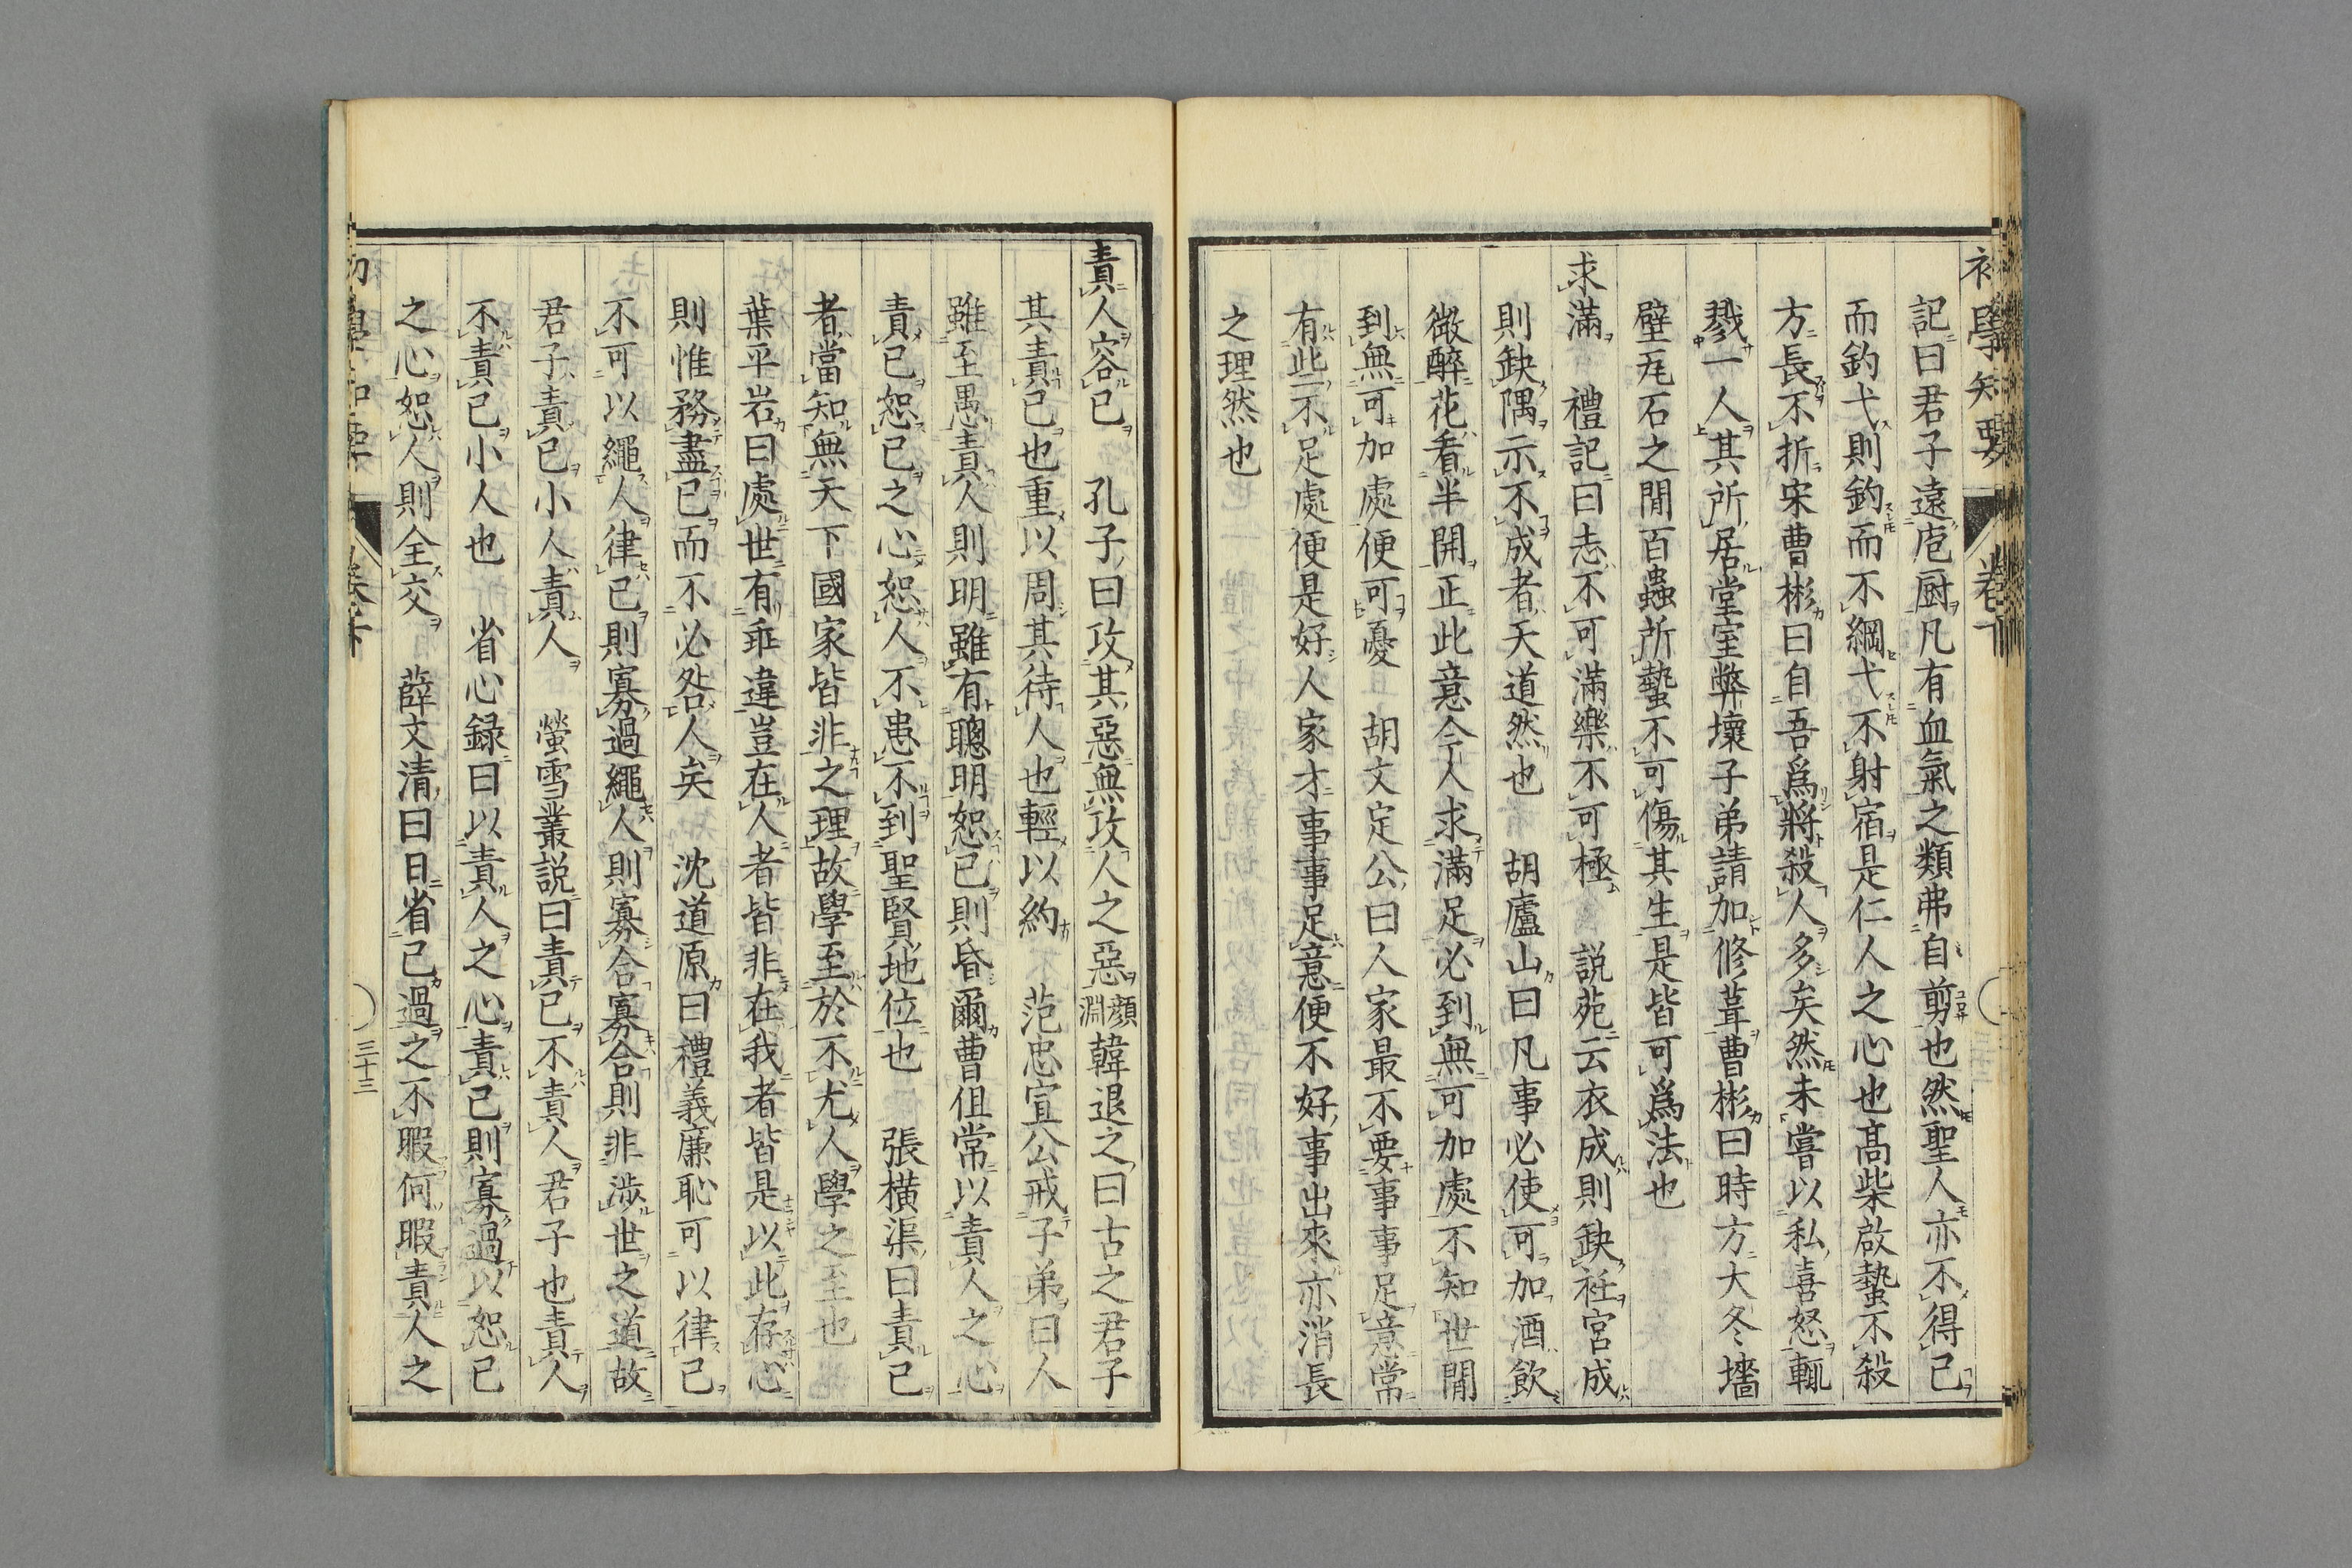 初學知要 卷下
記曰君子遠庖厨凡有血氣之類弗自剪也然聖人亦不得已
而釣弋則釣而不綱弋不射宿是仁人之心也高柴啟蟄不殺
方長不折宋曹彬曰自吾爲將殺人多矣然未嘗以私喜怒輒
戮一人其所居堂室弊壞子弟請加修葺曹彬曰時方大冬墻
壁瓦石之間百蟲所蟄不可傷其生是皆可爲法也
求滿 禮記曰志不可滿樂不可極 説苑云衣成則缺衽宮成
則缺隅示不成者天道然也 胡廬山曰凡事必使可加酒飲
微醉花看半開正此意今人求滿足必到無可加處不知世間
到無可加處便可憂 胡文定公曰人家最不要事事足意常
有些不足處便是好人家才事事足意便不好事出來亦消長
之理然也
責人容己 孔子曰攻其惡無攻人之惡顔淵韓退之曰古之君子
其責己也重以周其待人也輕以約 范忠宣公戒子弟曰人
雖至愚責人則明雖有聰明恕己則昏爾曹但常以責人之心
責己恕己之心恕人不患不到聖賢地位也 張橫渠曰責己
者當知無天下國家皆非之理故學至於不尤人學之至也
葉平岩曰處世有乖違豈在人者皆非在我者皆是以此存心
則惟務盡己而不必咎人矣 沈道原曰禮義廉恥可以律己
不可以繩人律己則寡過繩人則寡合寡合則非渉世之道故
君子責己小人責人 螢雪叢説曰責己不責人君子也責人
不責己小人也 省心録曰以責人之心責己則寡過以恕己
之心恕人則全交 薛文清曰日省己過之不暇何暇責人之
卷下 三十三